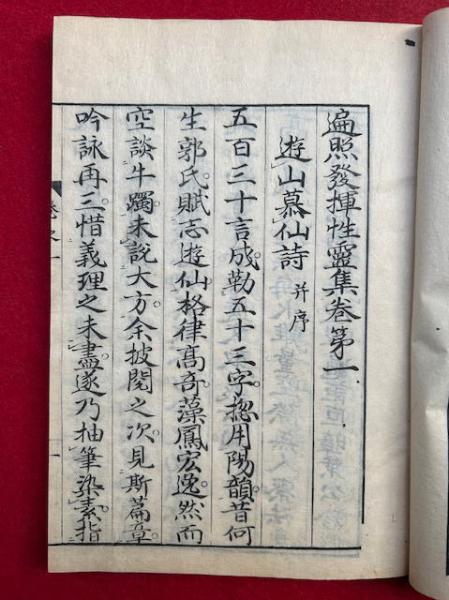 遍照發揮性靈集卷第一
遊山慕仙詩 并序
五百三十言成勒五十三字揔用陽韻昔何
生郭氏賦志遊仙格律高奇藻鳳宏逸然而
空談牛躅未說大方余披閱之次見斯篇章
吟詠再三惜義理之未盡遂乃抽筆染素指